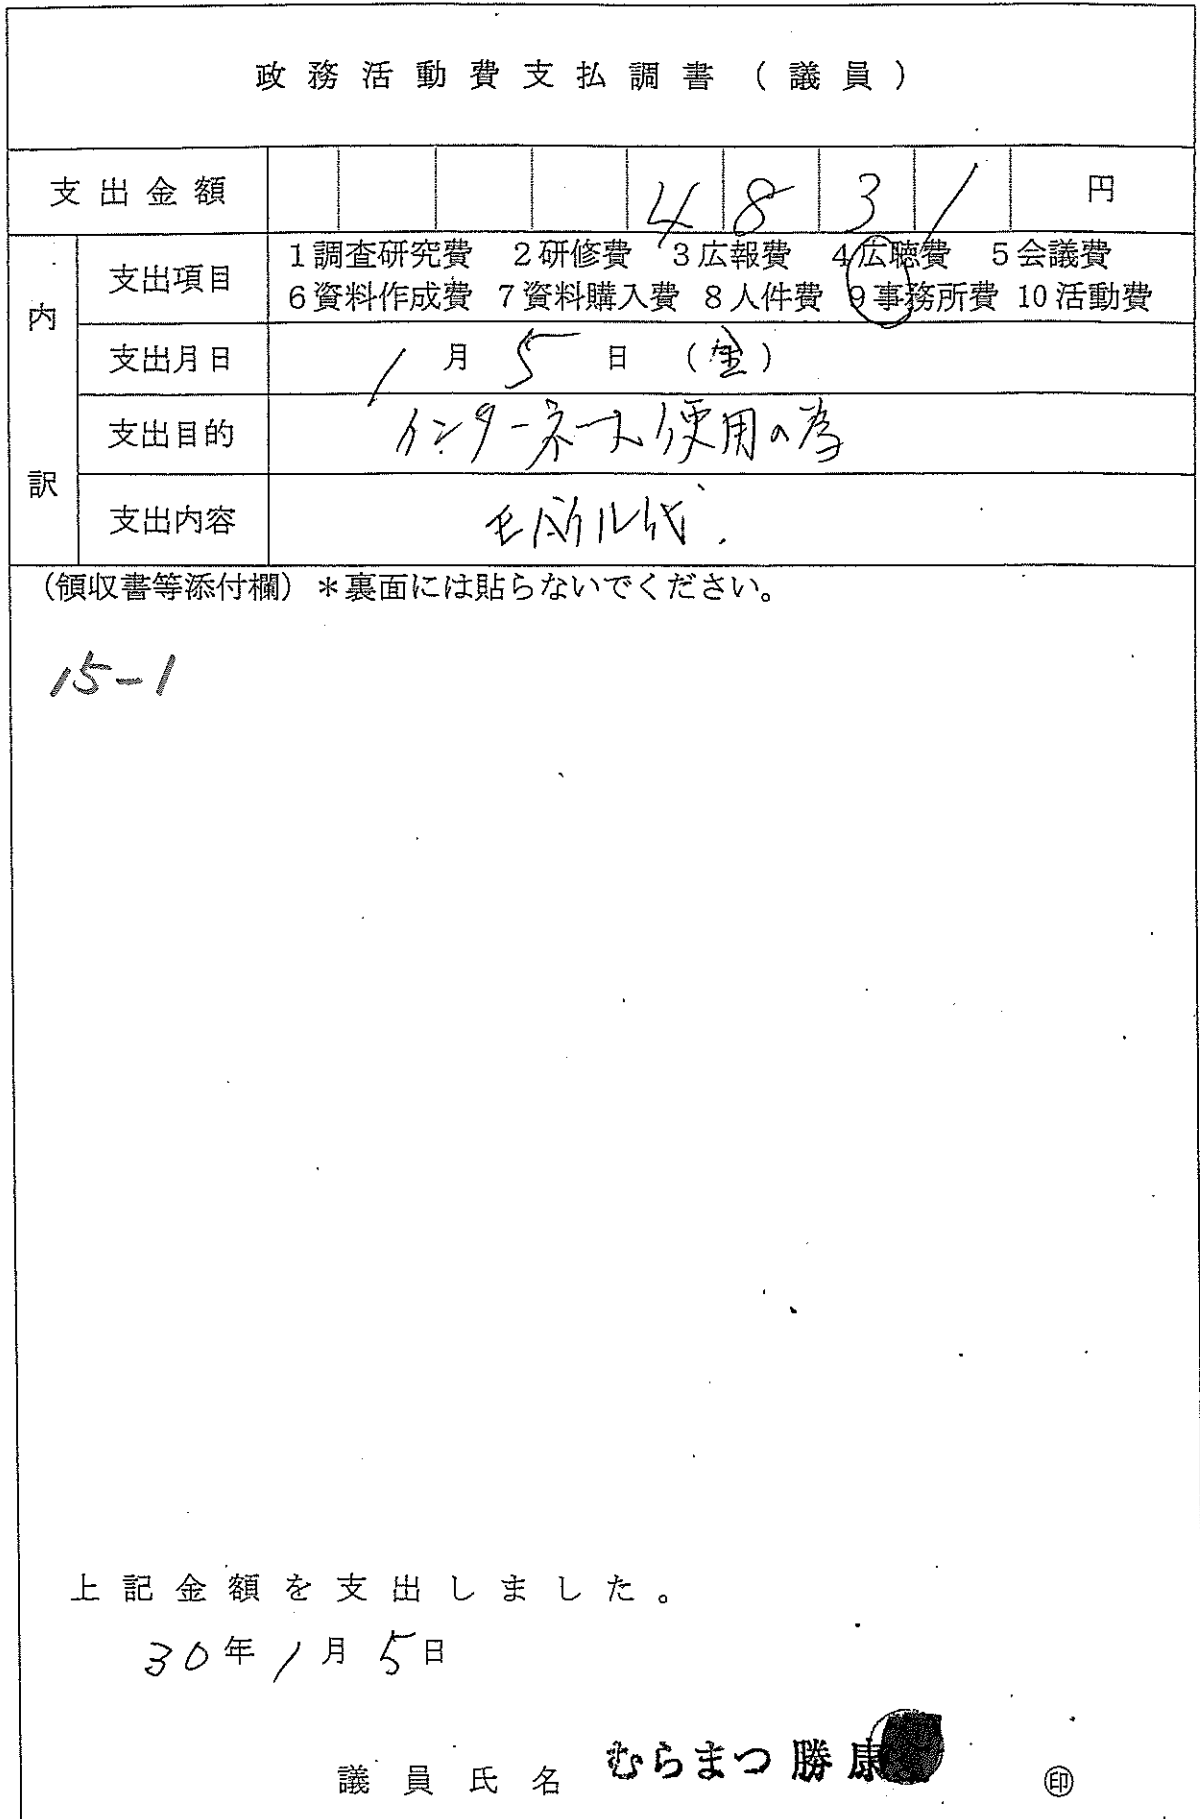 政務活動費支払調書（議員）
支出金額 4831円
内訳
支出項目 1調査研究費 2研修費 3広報費 4広聴費 5会議費
6資料作成費 7資料購入費 8人件費 9事務所費 10活動費
支出月日 1月5日（金）
支出目的 インターネット使用の為
支出内容 モバイル代
（領収書等添付欄）＊裏面には貼らないでください。
15-1
上記金額を支出しました。
30年1月5日
議員氏名 むらまつ勝康 ㊞